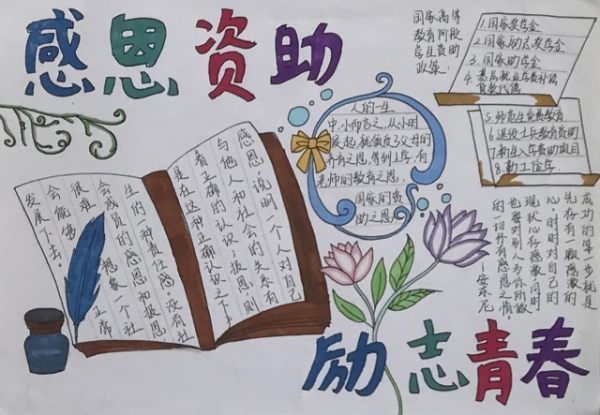 感恩资助
国家高等
教育阶段
学生资助
政策:
1.国家奖学金
2.国家励志奖学金
3.国家助学金
4.基层就业学费补偿
贷款代偿
5.师范生免费教育
6.退役士兵教育资助
7.新生入学资助项目
8.勤工俭学
人的一生
中,小而言之,从小时
候起,就领受了父母的
养育之恩,等到上学,有
老师的教育之恩,
国家的资
助之恩
感恩,说明一个人对自己
与他人和社会的关系有
着正确的认识;报恩,则
是在这种正确认识之下
产生的一种责任感。没有社
会成员的感恩和报恩,
很难想象一个社
会能够正常
发展下去。
成功的第一步就是
先存有一颗感激的
心,时时对自己的
现状心存感激,同时
也要对别人为你所做
的一切怀有感恩之情。
——安东尼
励志青春